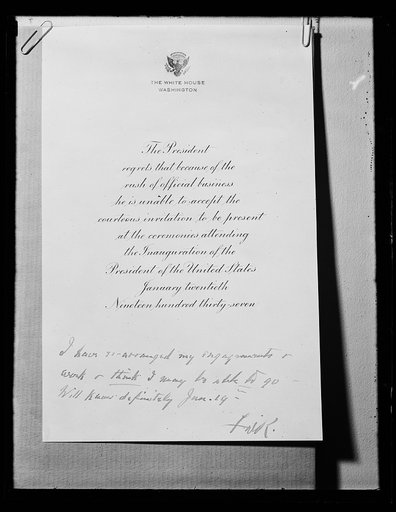 THE WHITE HOUSE
WASHINGTON
The President
regrets that because of the
rush of official business
he is unable to accept the
courteous invitation to be present
at the ceremonies attending
the Inauguration of the
President of the United States
January twentieth
Nineteen hundred thirty-seven
I have re-arranged my engagements &
work & think I may be able to go –
Will know definitely Jan. 19th
FDR.